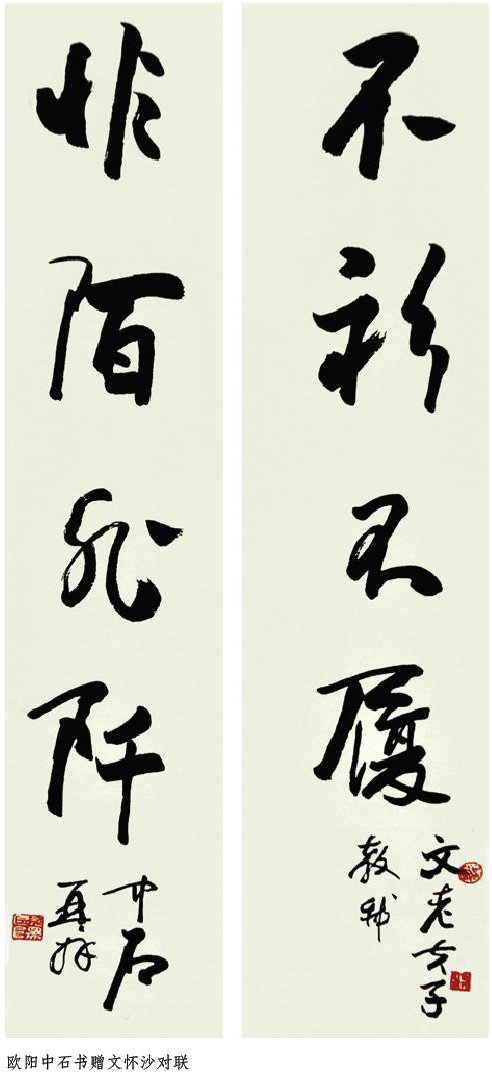 不衫不履
文老夫子
教
非陌非阡
中石
再拜
欧阳中石书赠文怀沙对联